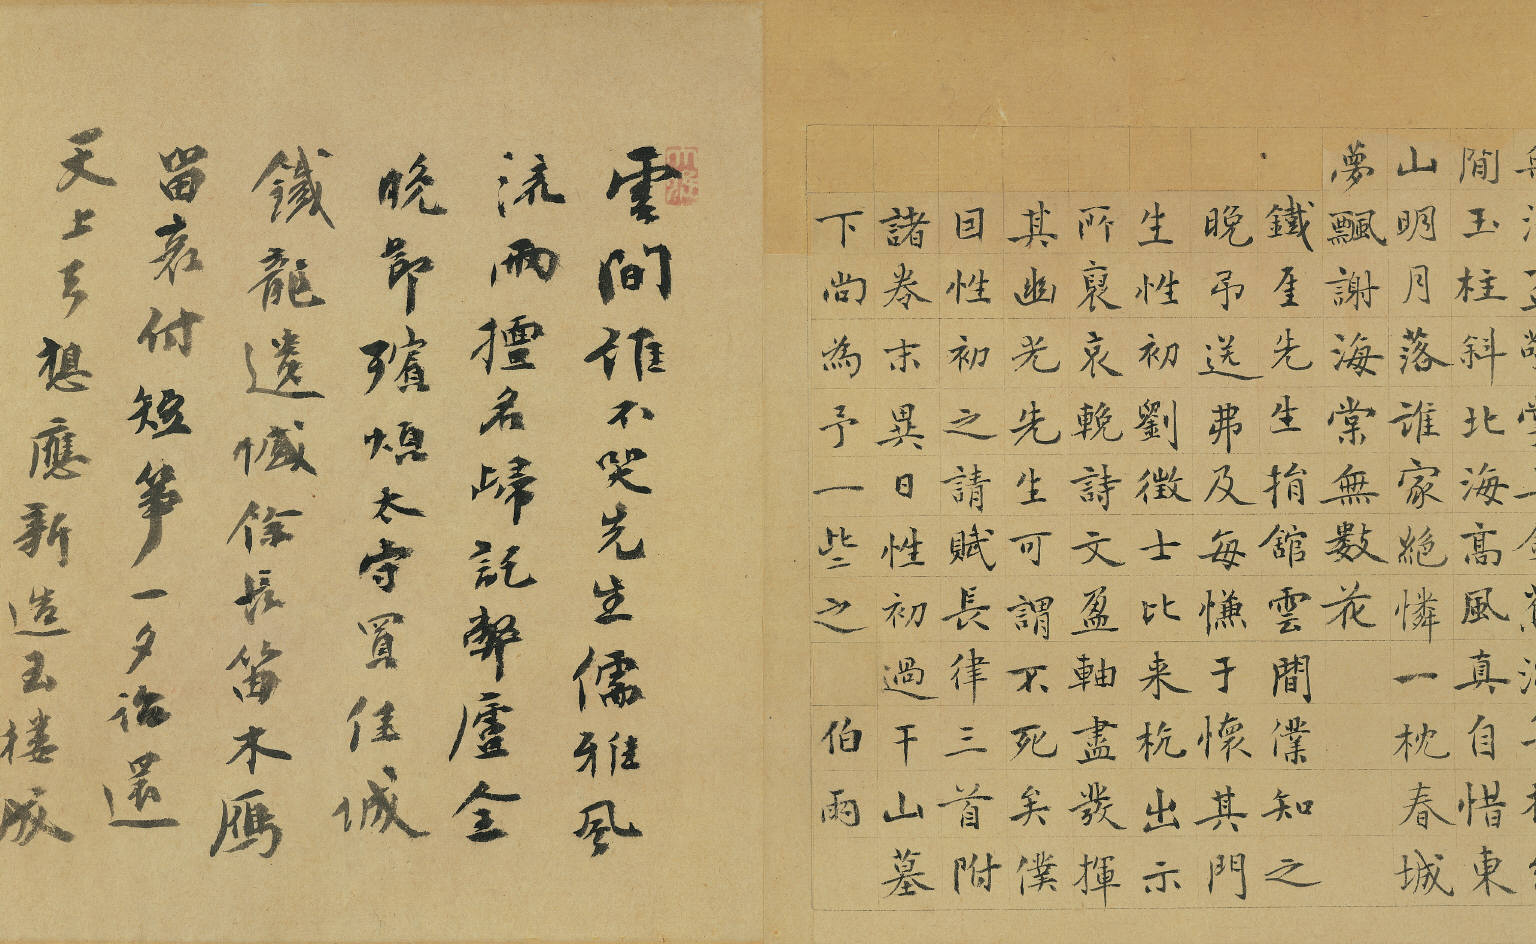 閒玉柱斜北海高風真自惜東
山明月落誰家絶憐一枕春城
夢飄謝海棠無數花
鐵厓先生捐舘雲間僕知之
晚弔送弗及每慊于懷其門
生性初劉徵士比来杭出示
所裒哀輓詩文盈軸盡發揮
其幽光先生可謂不死矣僕
因性初之請賦長律三首附
諸卷末異日性初過干山墓
下尚為予一些之 伯雨
雲間誰不哭先生儒雅風
流兩擅名歸託弊廬全
晚節殯煩太守買佳城
鐵龍遺憾徐長笛木鴈
留哀付短箏一夕詔還
天上去想應新造玉樓成